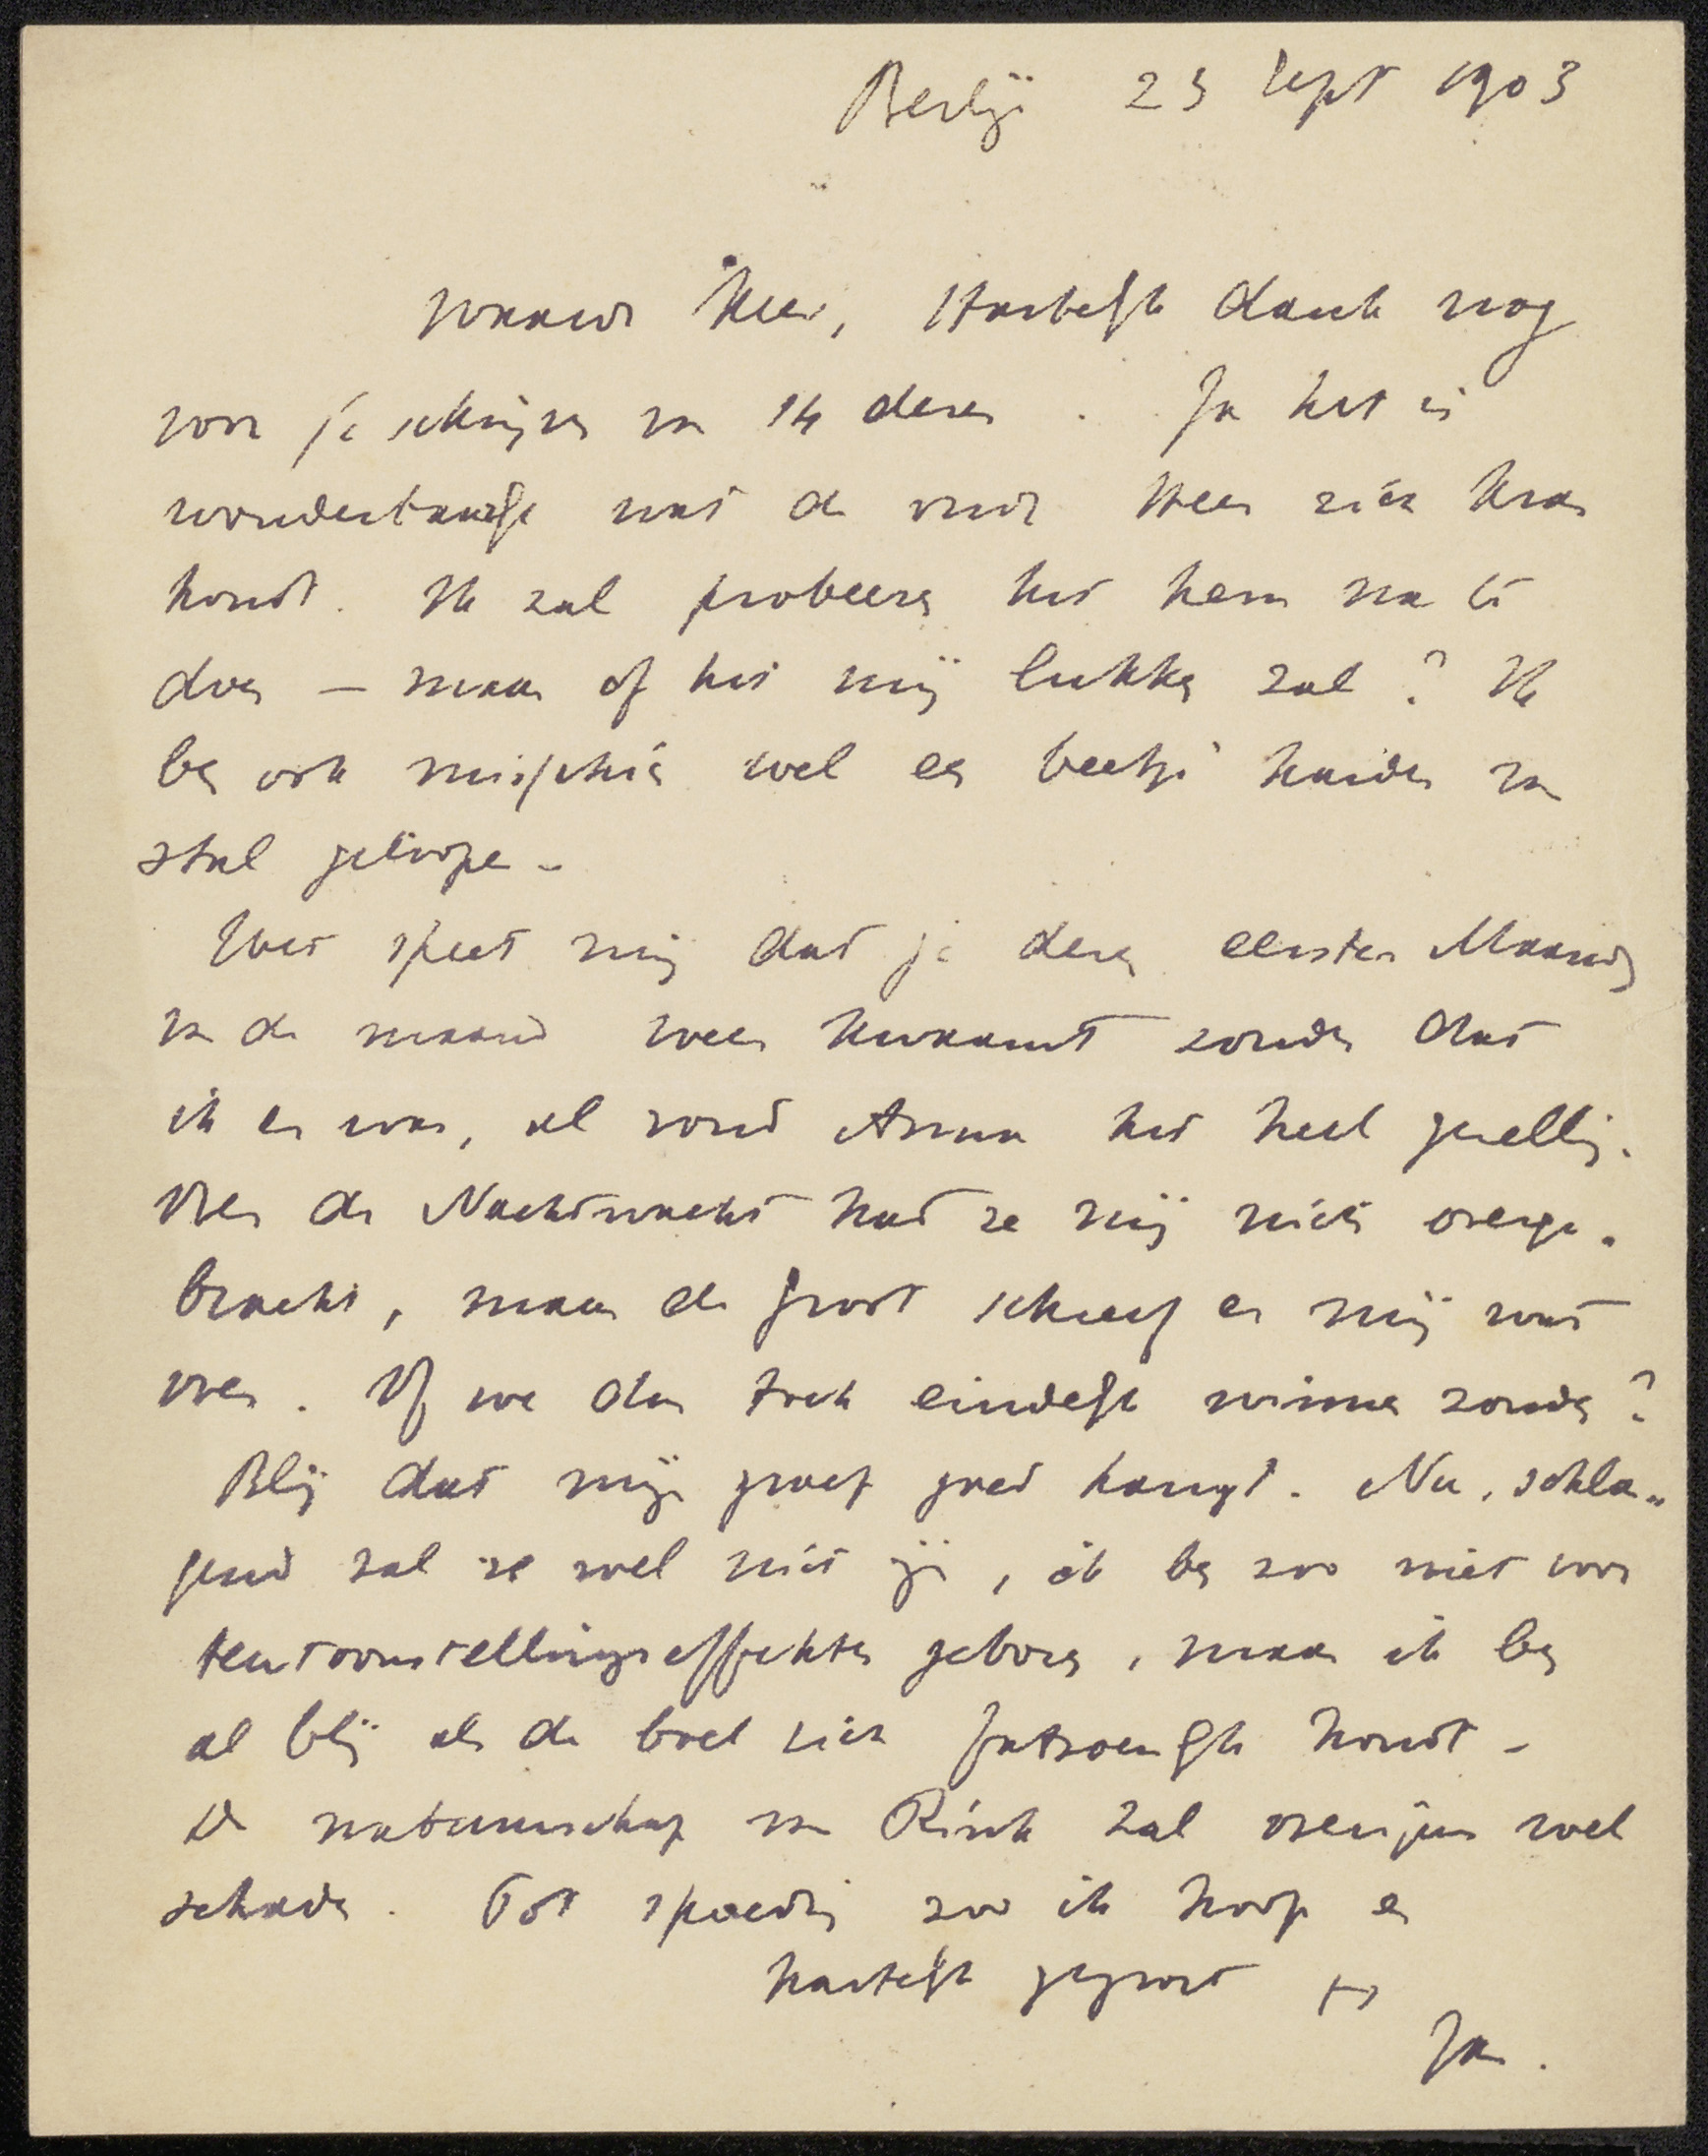 Berlijn 23 Sept 1903
Waarde Heer, Hartelijk dank nog
voor je schrijven van 14 dezer. Ja het is
wonderbaarlijk wat de oude Heer zich kras
houdt. Ik zal probeeren het hem na te
doen — maar of het mij lukken zal? Ik
ben ook misschien wel een beetje harder van
stal geloopen -
Het speet mij dat je dezen eersten Maandag
van de maand weer kwaamt zonder dat
ik er was, al vond Anna het heel gezellig.
Over de Nachtwacht had ze mij niets overge-
bracht, maar de Groot schreef er mij wat
over. Of we dan toch eindelijk winnen zouden?
Blij dat mijn goed hangt. Nu, schla-
gend zal ze wel niet zijn, ik ben zoo niet voor
tentoonstellingseffekten geboren, maar ik ben
al blij als de boel zich fatsoenlijk houdt -
De van Rink zal overigens wel
schaden. Tot spoedig zoo ik hoop en
hartelijk gegroet
Jan.